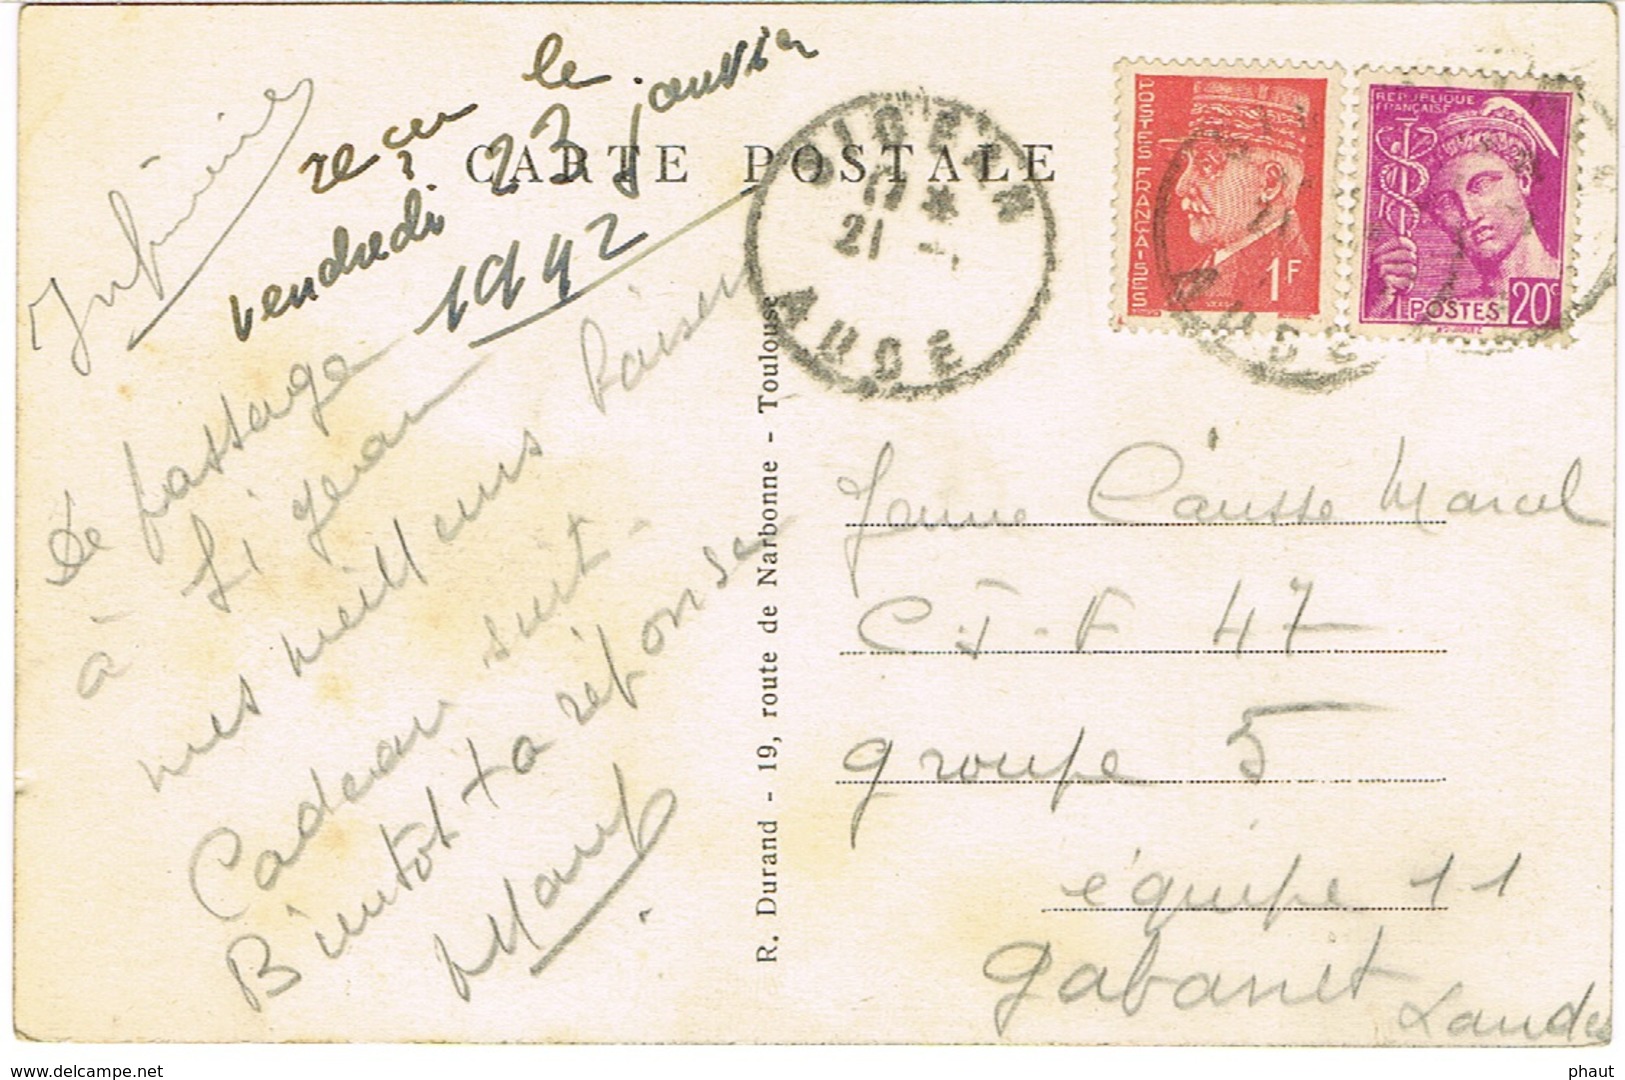 reçu le
vendredi 23 janvier
1942
CARTE POSTALE
De passage
à
mes meilleurs baisers
Cadeau suit.
Bientôt ta réponse
R. Durand - 19, route de Narbonne - Toulouse
SIGEAN
17 *
21 - 1
AUDE
POSTES FRANÇAISES
1F
REPUBLIQUE
FRANÇAISE
POSTES 20c
AUDE
Jeune Causse Marcel
C. J. F 47
groupe 5
équipe 11
Gabarret
Landes
delcampe.net
phaut